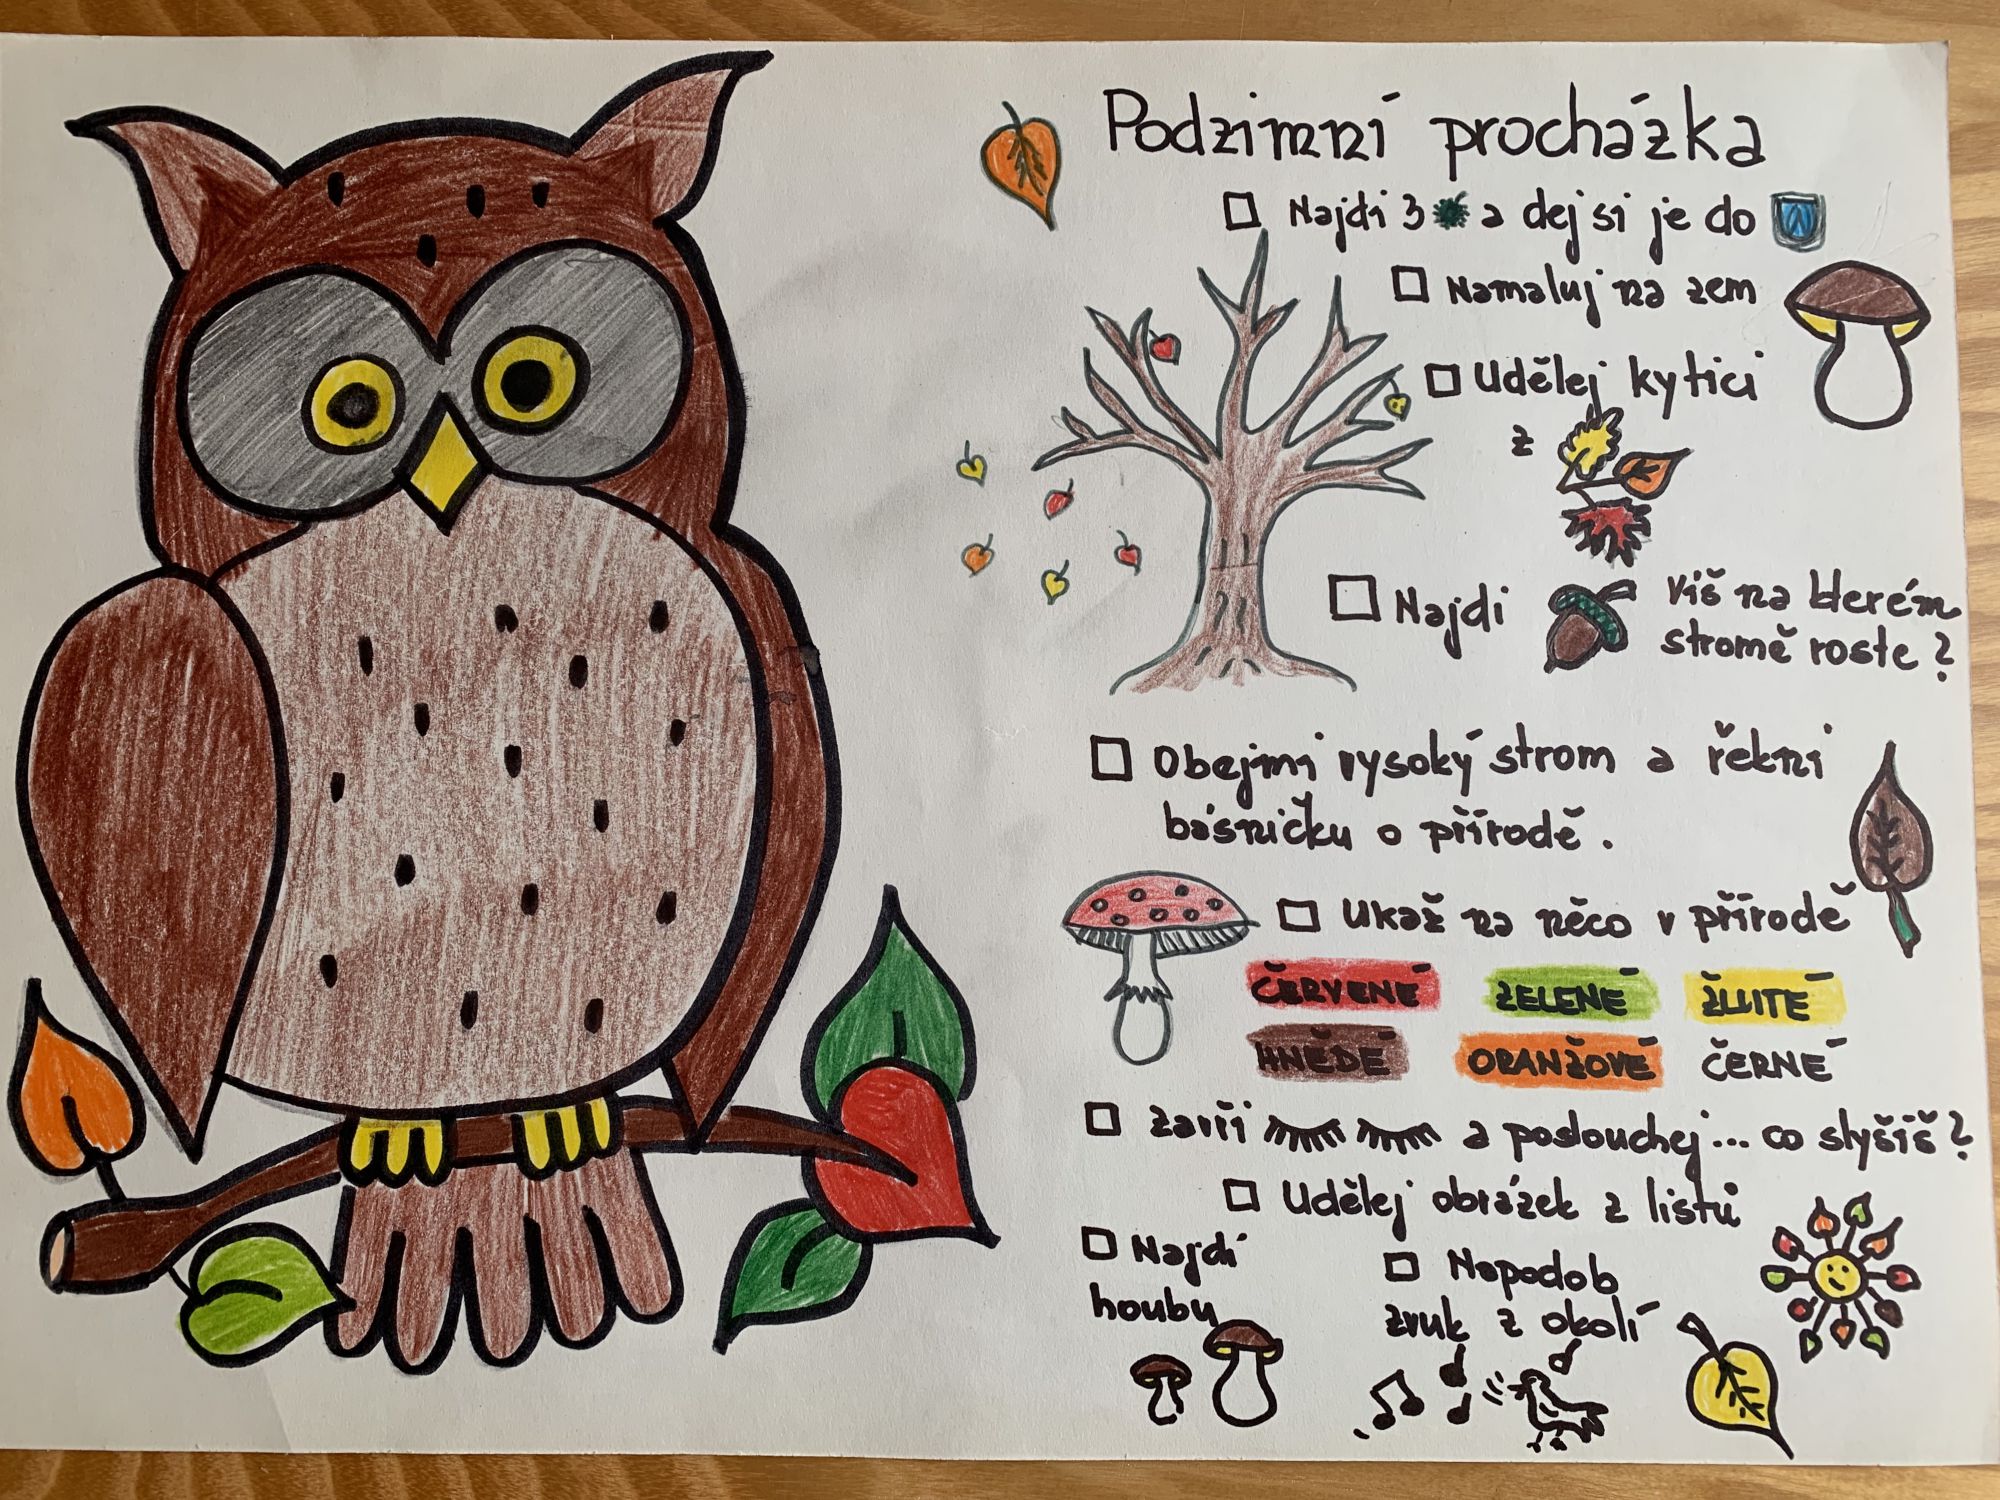 Podzimní procházka
Najdi 3 a dej si je do
Namaluj na zem
Udělej kytici
z
Najdi
Víš na kterém
stromě roste?
Obejmi vysoký strom a řekni
básničku o přírodě.
Ukaž na něco v přírodě
ČERVENÉ ZELENÉ ŽLUTÉ
HNĚDÉ ORANŽOVÉ ČERNÉ
Zavři a poslouchej... co slyšíš?
Udělej obrázek z listů
Najdi
houbu
Napodob
zvuk z okolí